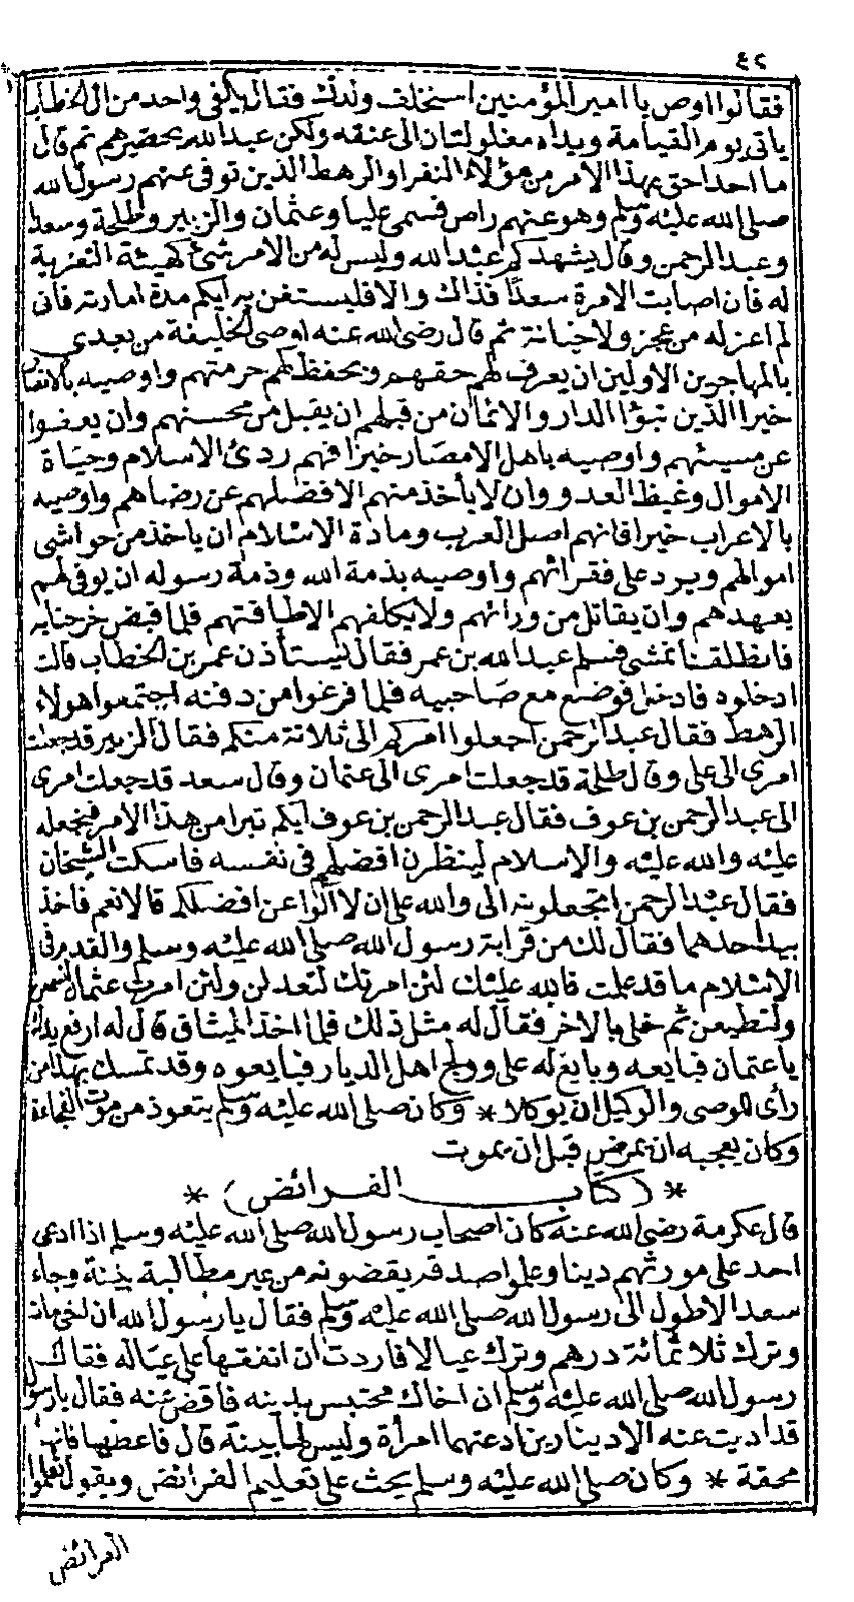 ٤٢
فقالوا اوص يا امير المؤمنين استخلف ولدك فقال يكفى واحد من ال الخطاب
ياتى يوم القيامة ويداه مغلولتان الى عنقه ولكن عبد الله يحضرهم ثم قال
ما احد احق بهذا الامر من هؤلاء النفر او الرهط الذين توفى عنهم رسول الله
صلى الله عليه وسلم وهو عنهم راض فسمى عليا وعثمان والزبير وطلحة وسعد
وعبد الرحمن وقال يشهدكم عبد الله وليس له من الامر شئ كهيئة التعزية
له فان اصابت الامرة سعدا فذاك والا فليستعن به ايكم مدة امارته فانى
لم اعزله من عجز ولا خيانة ثم قال رضى الله عنه اوصى الخليفة من بعدى
بالمهاجرين الاولين ان يعرف لهم حقهم ويحفظ لهم حرمتهم واوصيه بالانصار
خيرا الذين تبوؤا الدار والايمان من قبلهم ان يقبل من محسنهم وان يعفوا
عن مسيئهم واوصيه باهل الامصار خيرا فهم ردئ الاسلام وجباة
الاموال وغيظ العدو وان لا يأخذ منهم الا فضلهم عن رضاهم واوصيه
بالاعراب خيرا فانهم اصل العرب ومادة الاسلام ان ياخذ من حواشى
اموالهم ويرد على فقرائهم واوصيه بذمة الله وذمة رسوله ان يوفى لهم
بعهدهم وان يقاتل من ورائهم ولا يكلفهم الا طاقتهم فلما قبض خرجنا به
فانطلقنا نمشى فسلم عبد الله بن عمر فقال يستأذن عمر بن الخطاب قالت
ادخلوه فادخل فوضع مع صاحبيه فلما فرغوا من دفنه اجتمعوا هولاء
الرهط فقال عبد الرحمن اجعلوا امركم الى ثلاثة منكم فقال الزبير قد جعلت
امرى الى على وقال طلحة قد جعلت امرى الى عثمان وقال سعد قد جعلت امرى
الى عبد الرحمن بن عوف فقال عبد الرحمن بن عوف ايكم تبرا من هذا الامر فنجعله
عليه والله عليه والاسلام لينظرن افضلهم فى نفسه فاسكت الشيخان
فقال عبد الرحمن افتجعلونه الى والله على ان لا آلوا عن افضلكم قالا نعم فاخذ
بيد احدهما فقال لك من قرابة رسول الله صلى الله عليه وسلم والقدم فى
الاسلام ما قد علمت فالله عليك لئن امرتك لتعدلن ولئن امرت عثمان لتسمعن
ولتطيعن ثم خلى بالاخر فقال له مثل ذلك فلما اخذ الميثاق قال له ارفع يدك
يا عثمان فبايعه وبايع له على وولج اهل الديار فبايعوه وقد تمسك بهذا من
رأى للوصى والوكيل ان يوكلا * وكان صلى الله عليه وسلم يتعوذ من موت الفجاءة
وكان يعجبه ان يمرض قبل ان يموت
* ( كتاب الفرائض ) *
قال عكرمة رضى الله عنه كان اصحاب رسول الله صلى الله عليه وسلم اذا ادعى
احد على مورثهم دينا وعلموا صدقه يقضونه من غير مطالبة ببينة وجاء
سعد الاطول الى رسول الله صلى الله عليه وسلم فقال يا رسول الله ان اخى مات
وترك ثلاثمائة درهم وترك عيالا فاردت ان انفقها على عياله فقال
رسول الله صلى الله عليه وسلم ان اخاك محتبس بدينه فاقض عنه فقال يا رسول الله
قد اديت عنه الا دينارين ادعتهما امرأة وليس لها بينة قال فاعطها فانها
محقة * وكان صلى الله عليه وسلم يحث على تعليم الفرائض ويقول تعلموا
الفرائض